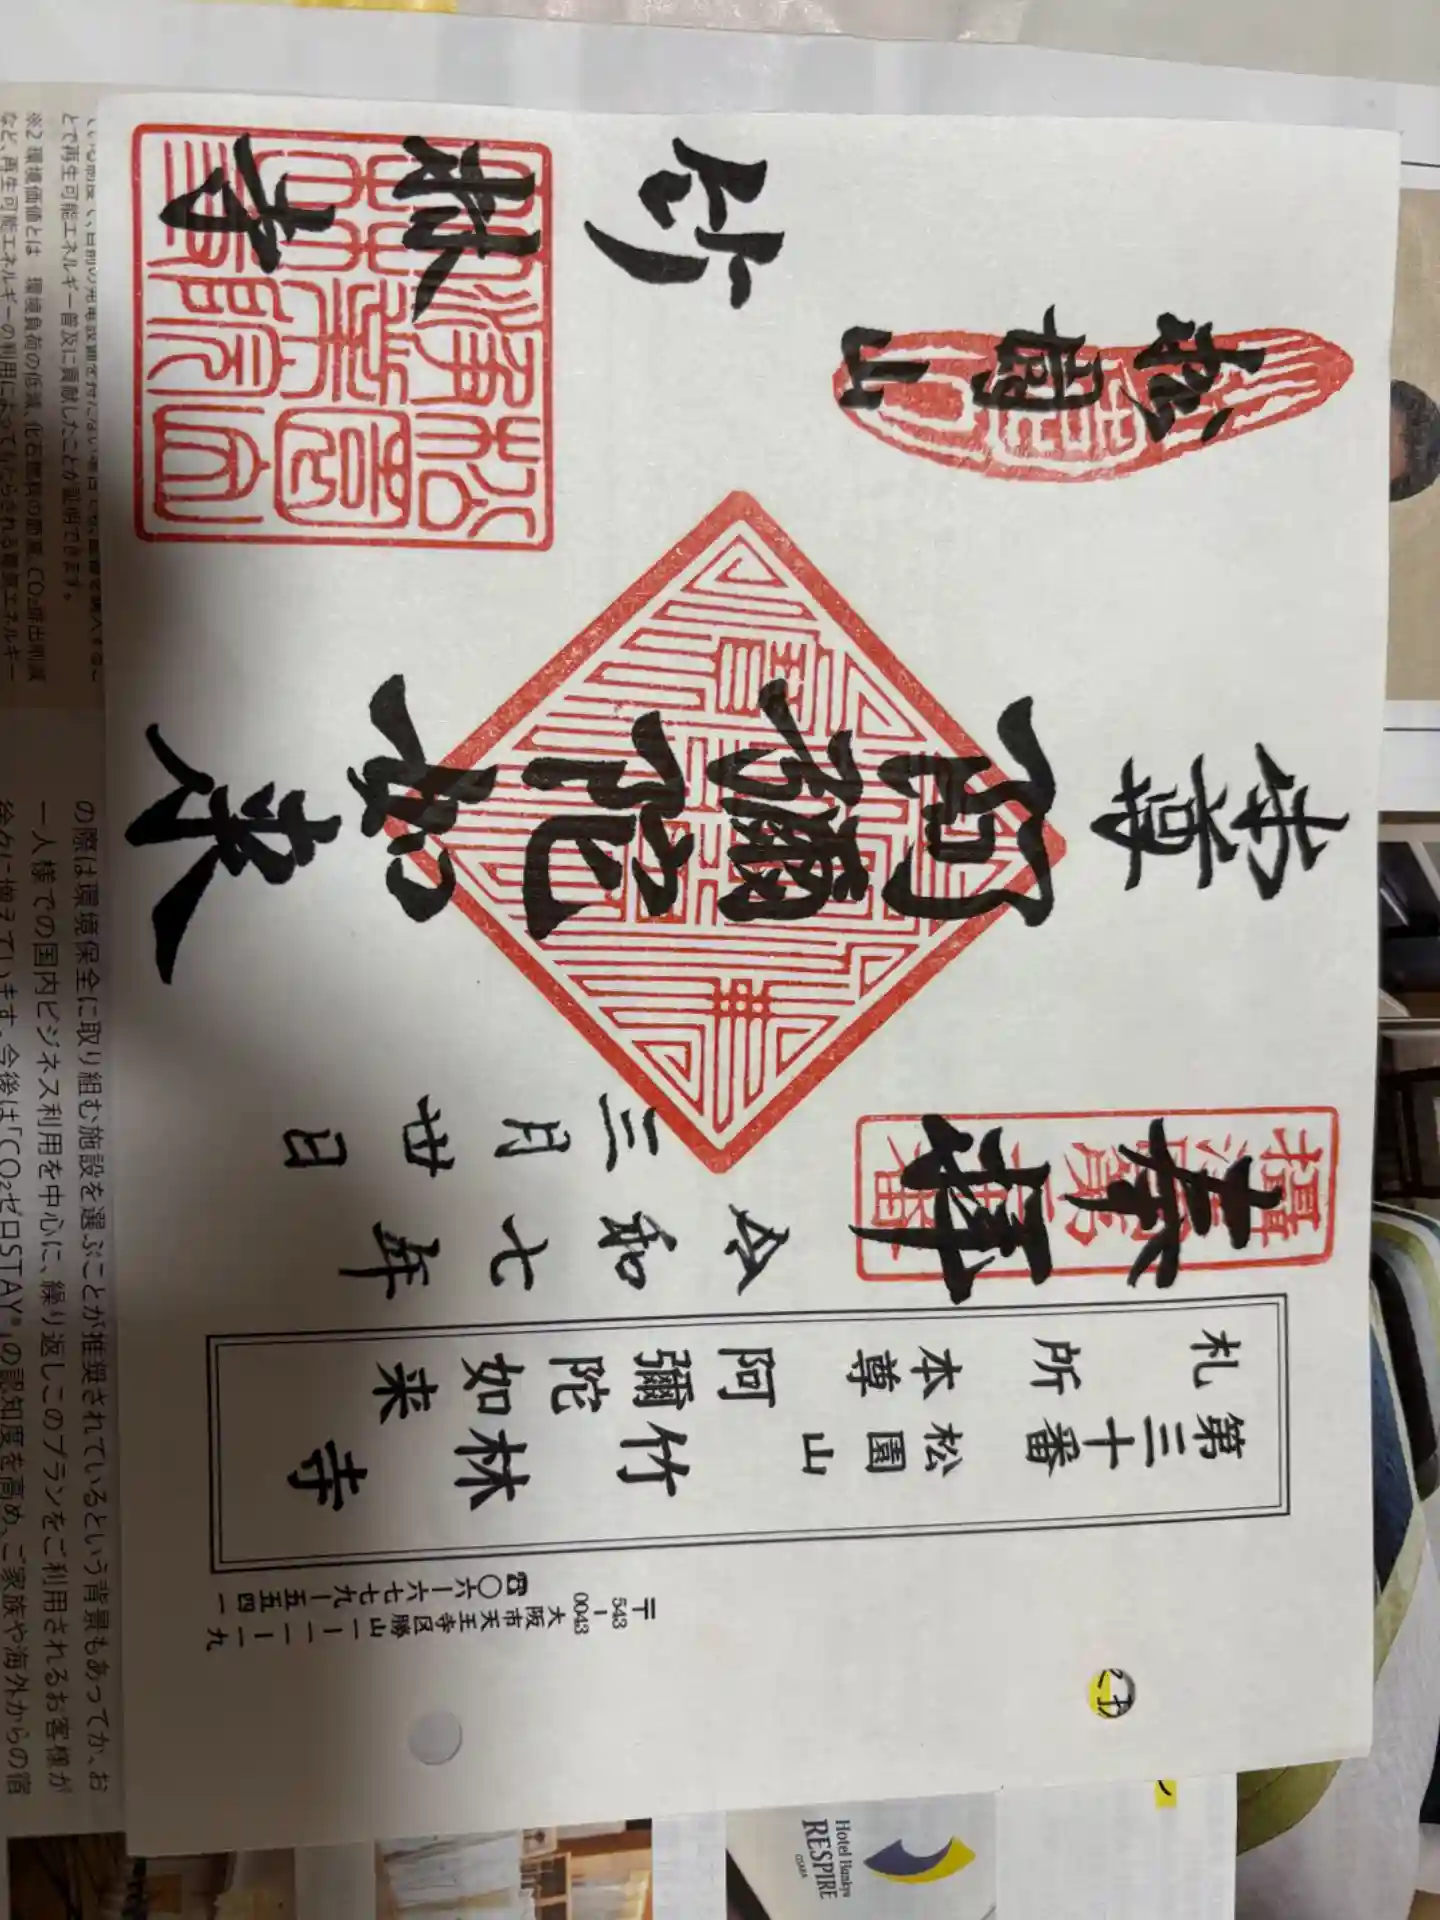 札所
第三十番
本尊 阿彌陀如来
松園山 竹林寺
〒543-0043
大阪市天王寺区勝山一-一-一九
☎〇六-六七七九-五五四一
奉拝
令和七年
三月廿日
本尊
阿彌陀如来
松園山
竹林寺
の際は環境保全に取り組む施設を選ぶことが推奨されているという背景もあってか、お
一人様での国内ビジネス利用を中心に、繰り返しこのプランをご利用されるお客様が
徐々に増えています。今後は「CO₂ゼロSTAY®」の認知度を高め、ご家族や海外からの宿
とで再生可能エネルギー普及に貢献したことが証明できます。
※2 環境価値とは 環境負荷の低減、化石燃料の節減、CO₂排出削減
など、再生可能エネルギーの利用によってもたらされる電気エネルギー
Hotel Hankyu
RESPIRE
OSAKA